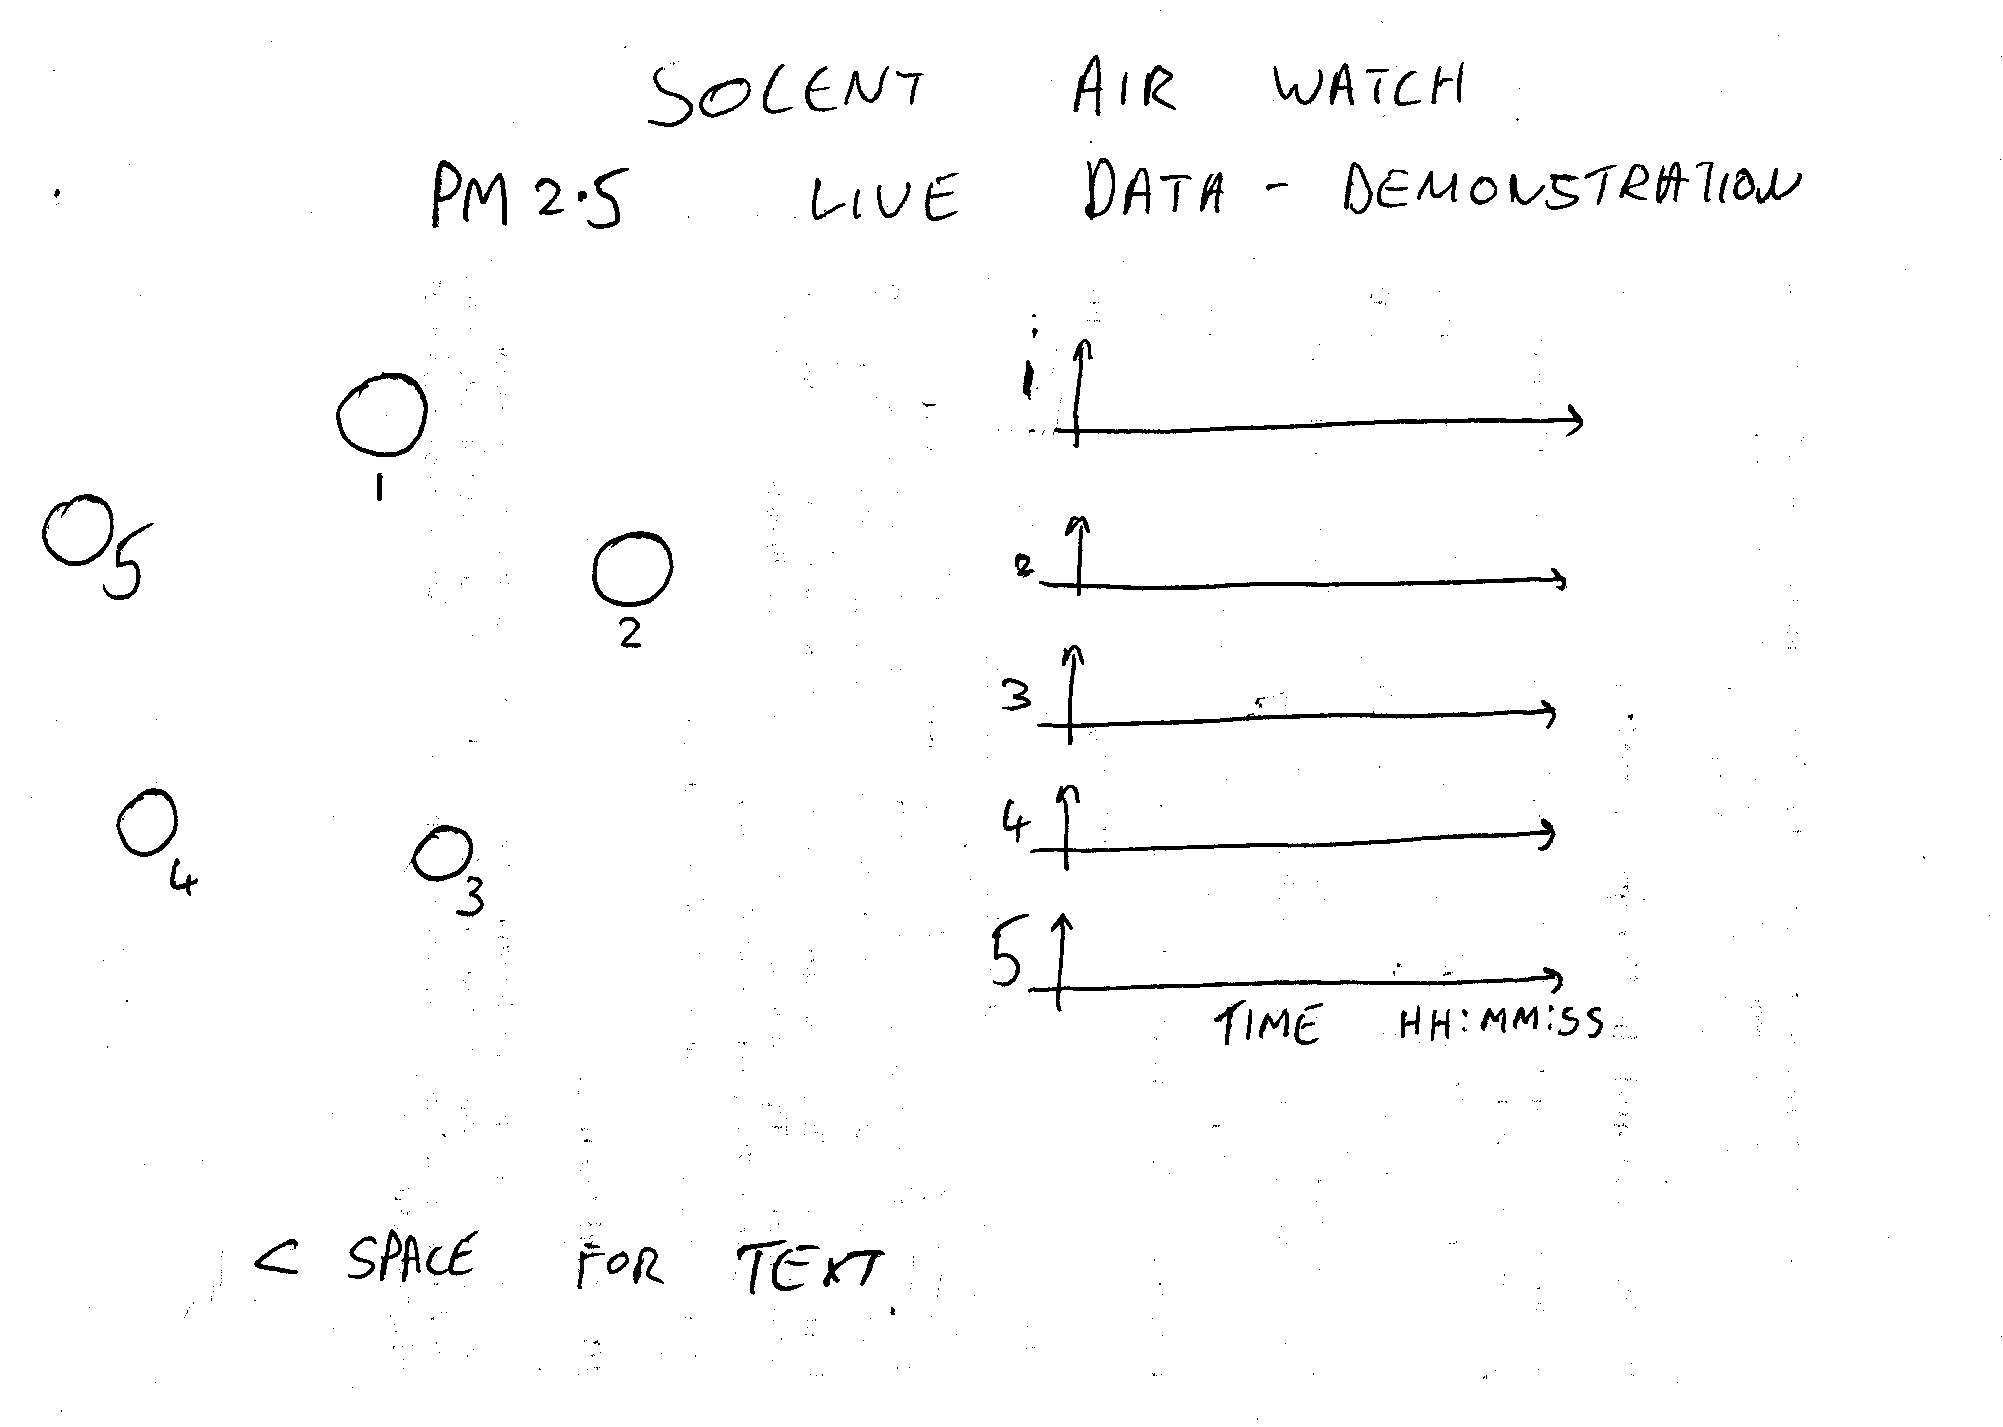 SOLENT AIR WATCH
PM2.5 LIVE DATA - DEMONSTRATION
1
1
5
2
2
3
3
4
4
5
TIME HH:MM:SS
< SPACE FOR TEXT.